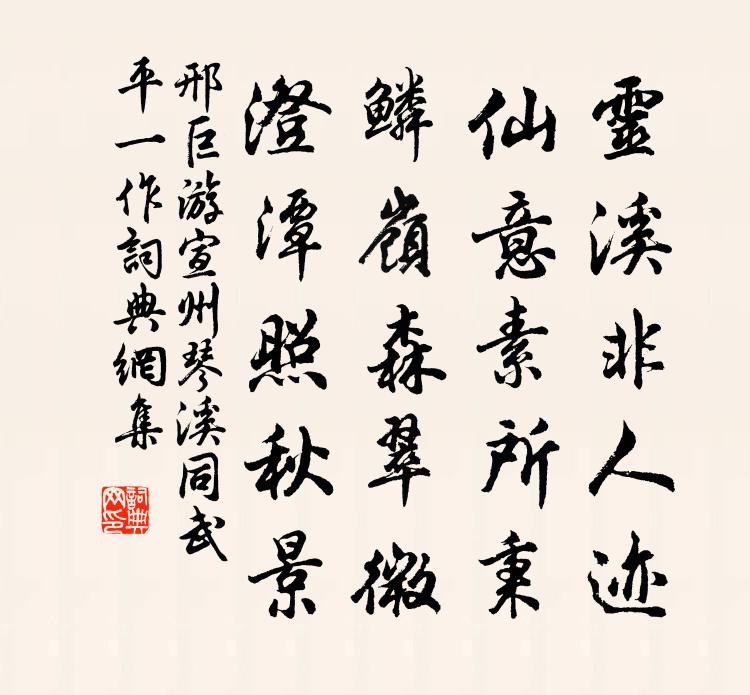 靈溪非人迹
仙意素所秉
鱗嶺森翠微
澄潭照秋景
邢巨游宣州琴溪同武
平一作詞典網集
詞典
网印